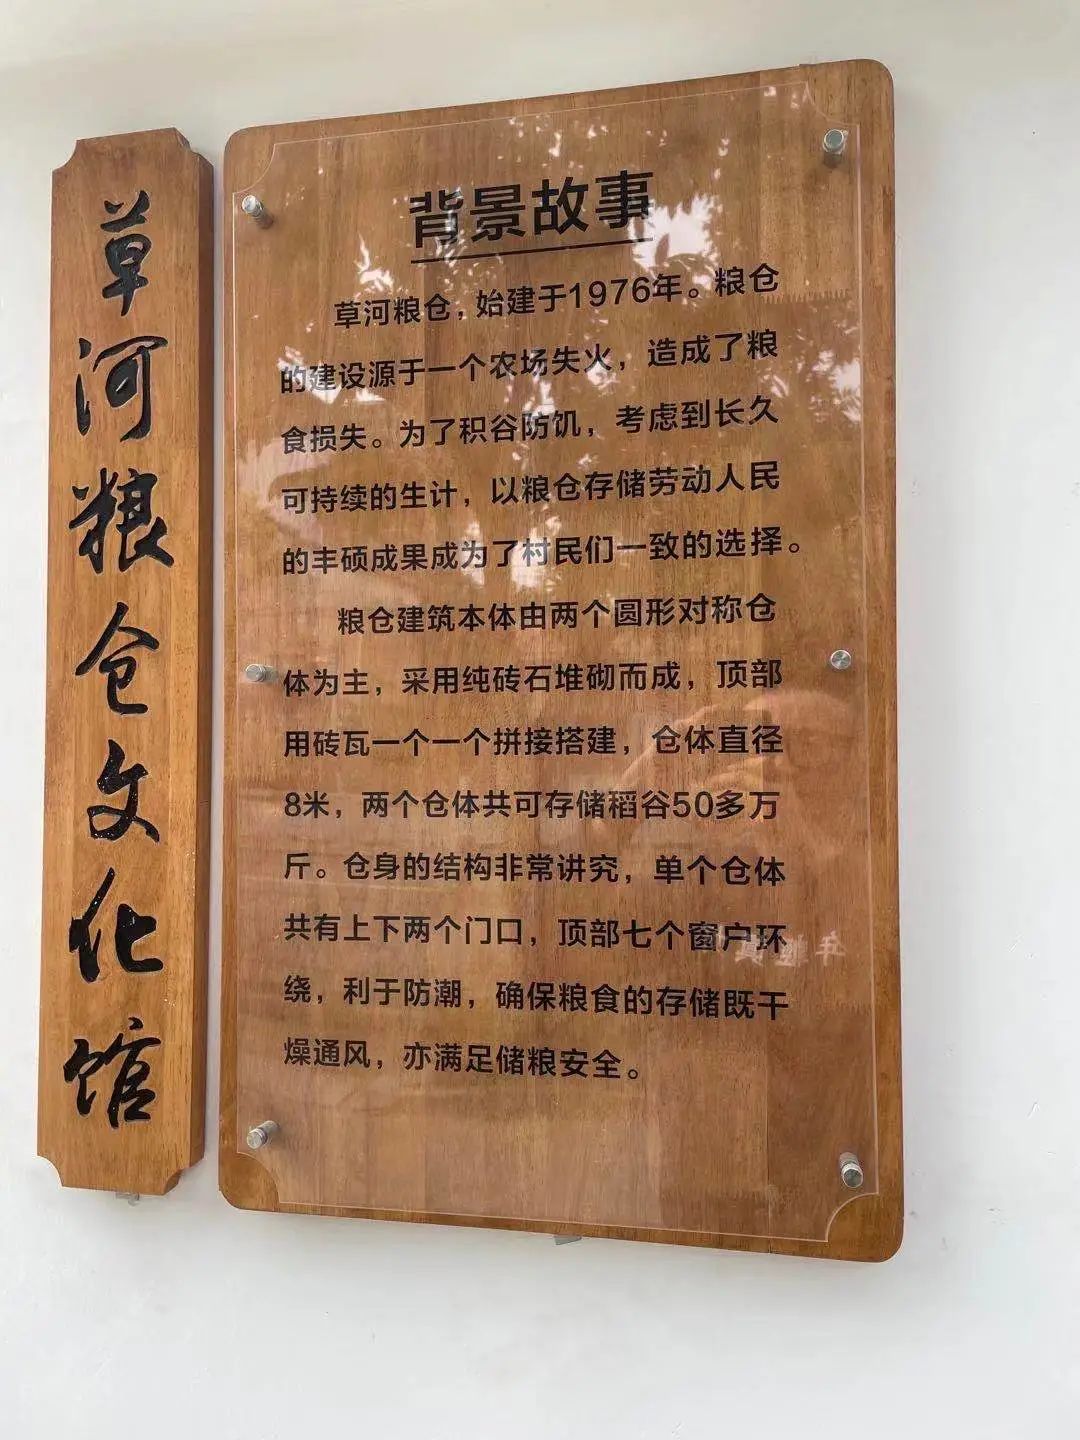 草河粮仓文化馆
背景故事
草河粮仓，始建于1976年。粮仓
的建设源于一个农场失火，造成了粮
食损失。为了积谷防饥，考虑到长久
可持续的生计，以粮仓存储劳动人民
的丰硕成果成为了村民们一致的选择。
粮仓建筑本体由两个圆形对称仓
体为主，采用纯砖石堆砌而成，顶部
用砖瓦一个一个拼接搭建，仓体直径
8米，两个仓体共可存储稻谷50多万
斤。仓身的结构非常讲究，单个仓体
共有上下两个门口，顶部七个窗户环
绕，利于防潮，确保粮食的存储既干
燥通风，亦满足储粮安全。